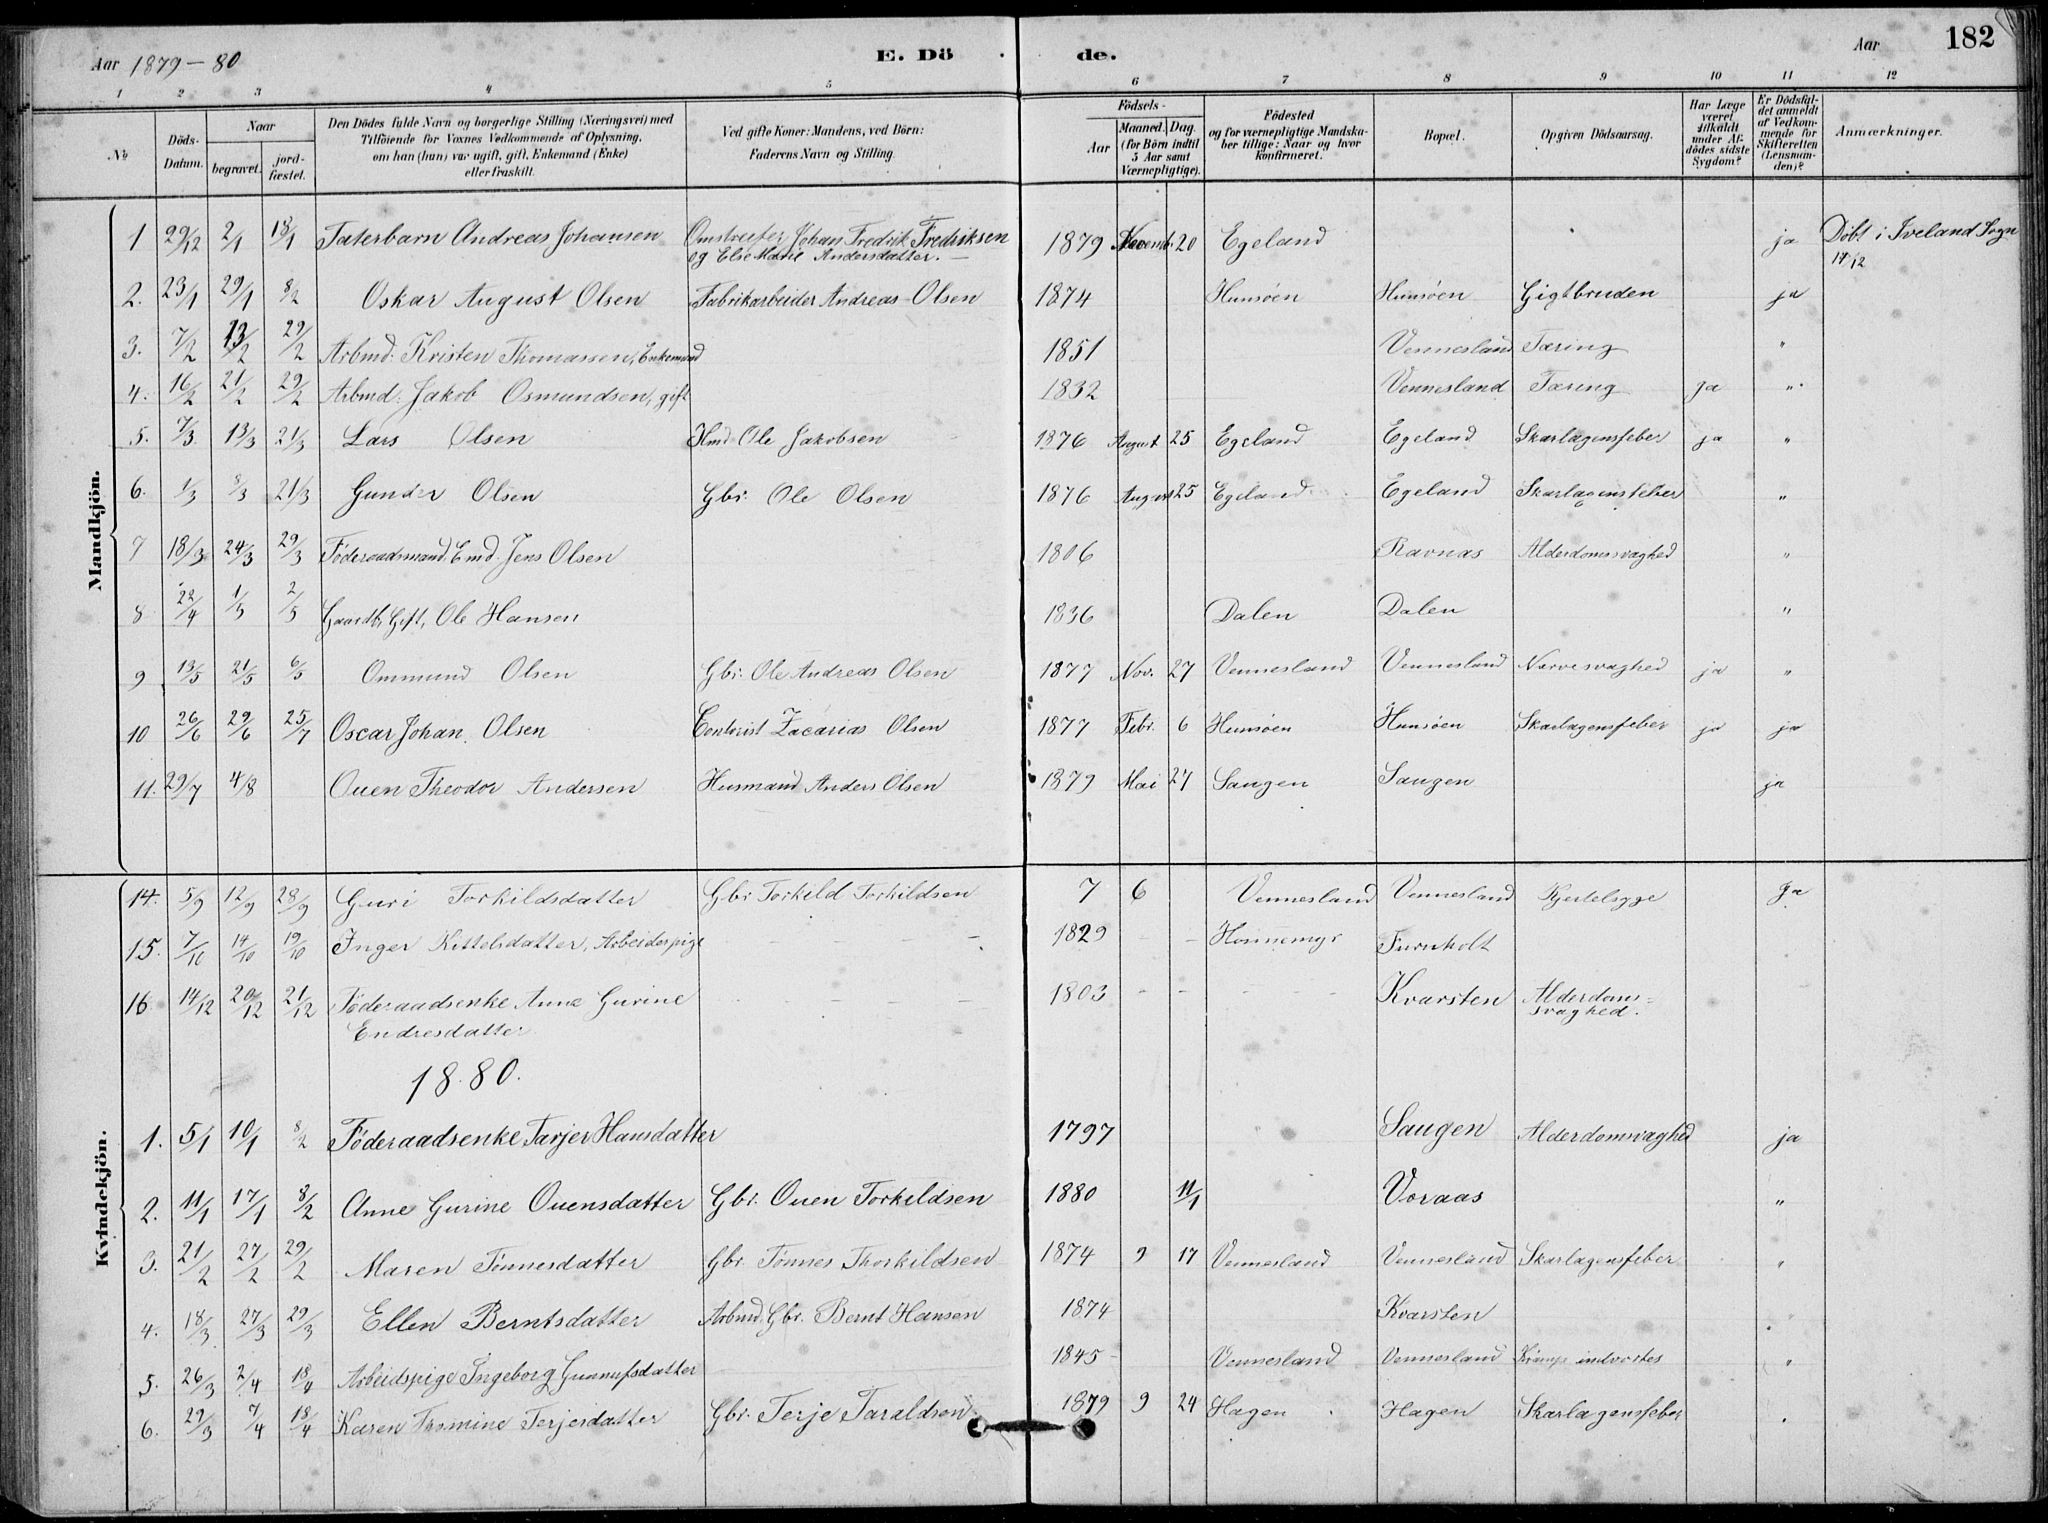 Aar 1879-80
E. Dö de.
Aar
182
1 2 3 4 5 6 7 8 9 10 11 12
No
Döds-Datum.
Naar
begravet.
jord-fæstet.
Den Dödes fulde Navn og borgerlige Stilling (Næringsvei) med
Tilföiende for Voxnes Vedkommende af Oplysning,
om han (hun) var ugift, gift, Enkemand (Enke)
eller fraskilt.
Ved gifte Koner: Mandens, ved Börn:
Faderens Navn og Stilling.
Födsels-
Aar
Maaned. Dag.
(for Börn indtil
5 Aar samt
Værnepligtige).
Födested
og for værnepligtige Mandska-
ber tillige: Naar og hvor
Konfirmeret.
Bopæl.
Opgiven Dödsaarsag.
Har Læge
været
tilkaldt
under Af-
dödes sidste
Sygdom?
Er Dödsfal-
det anmeldt
af Vedkom-
mende for
Skifteretten
(Lensman-
den)?
Anmærkninger.
Mandkjön.
1 29/12 2/1 18/1 Taterbarn Andreas Johansen Omstreifer Johan Fredrik Fredriksen 1879 Novemb. 20 Egeland ja Döbt i Iveland Sogn
og Else Marie Andersdatter. 14/12
2. 23/1 29/1 8/2 Oskar August Olsen Fabrikarbeider Andreas Olsen 1874 Hunsöen Hunsöen Gigtbruden ja
3. 7/2 13/2 29/2 Arbmd. Kristen Thomassen, Enkemand 1851 Vennesland Tæring "
4. 16/2 21/2 29/2 Arbmd: Jakob Osmundsen, gift 1832 Vennesland Tæring Ja "
5. 7/3 13/3 21/3 Lars Olsen Hmd Ole Jakobsen 1876 August 25 Egeland Egeland Skarlagensfeber ja "
6. 1/3 8/3 21/3 Gunder Olsen Gbr. Ole Olsen 1876 August 25 Egeland Egeland Skarlagensfeber "
7 18/3 24/3 29/3 Föderaadsmand, Emd. Jens Olsen 1806 Ravnas Alderdomssvaghed "
8 22/4 1/5 2/5 Gaardb, Gift, Ole Hansen 1836 Dalen Dalen "
9 13/5 21/5 6/5 Ommund Olsen Gbr. Ole Andreas Olsen 1877 Nov. 27 Vennesland Vennesland Nervesvaghed ja "
10 26/6 29/6 25/7 Oscar Johan Olsen Contorist Zacarias Olsen 1877 Febr. 6 Hunsöen Hunsöen Skarlagensfeber ja ja
11. 29/7 4/8 Ouen Theodor Andersen Husmand Anders Olsen 1879 Mai 27 Saugen Saugen ja
Kvindekjön.
14. 5/9 12/9 28/9 Guri Torkildsdatter Gbr Torkild Torkildsen 7 6 Vennesland Vennesland Kjertelsyge Ja
15. 7/10 14/10 19/10 Inger Kittelsdatter, Arbeiderpige - - - 1829 - - Honnemyr Furuholt
16 14/12 20/12 21/12 Föderaadsenke Anne Gurine - - - 1803 - - - - Kvarsten Alderdoms=
Endresdatter svaghed.
18.80.
1. 5/1 10/1 8/2 Föderaadsenke Tarjer Hansdatter 1797 Saugen Alderdomsvaghed ja
2. 11/1 17/1 8/2 Anne Gurine Ouensdatter Gbr. Ouen Torkildsen 1880 11/1 Voraas "
3. 21/2 27/2 29/2 Maren Tönnesdatter Gbr. Tönnes Thorkildsen 1874 9 17 Vennesland Vennesland Skarlagensfeber "
4. 18/3 27/3 29/3 Ellen Berntsdatter Arbmd. Gbr. Bernt Hansen 1874 Kvarsten "
5. 26/3 2/4 18/4 Arbeidspige Ingeborg Gunnufsdatter 1845 - Vennesland Vennesland Krampe indvortes "
6. 29/3 7/4 18/4 Karen Thomine Terjesdatter Gbr. Terje Taraldsen 1879 9 24 Hagen Hagen Skarlagensfeber